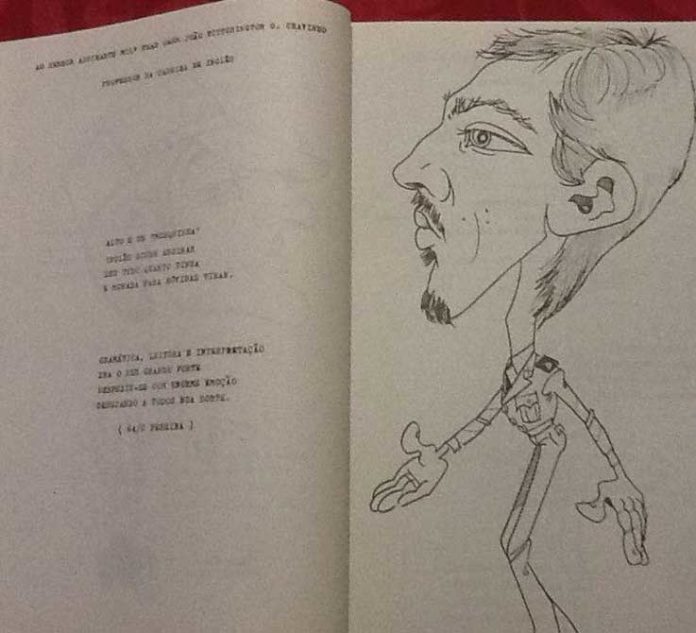 AO SENHOR ASPIRANTE MILº JOÃO G. CRAVINHO
PROFESSOR DA CADEIRA DE INGLÊS
ALTO E DE "MOSQUINHA"
INGLÊS SOUBE ENSINAR
DEU TUDO QUANTO TINHA
E MORADA PARA DÚVIDAS TIRAR.
GRAMÁTICA, LEITURA E INTERPRETAÇÃO
ERA O SEU GRANDE FORTE
DESPEDIU-SE COM ENORME EMOÇÃO
DESEJANDO A TODOS BOA SORTE.
( 64/ PEREIRA )